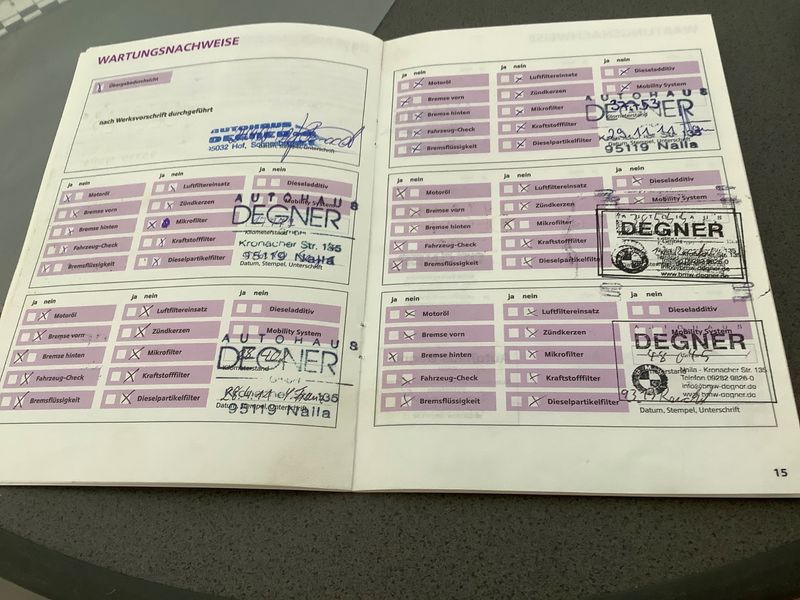 WARTUNGSNACHWEISE
Übergabedurchsicht
nach Werksvorschrift durchgeführt
AUTOHAUS
DEGNER
95032 Hof,
Unterschrift
ja nein
ja nein
ja nein
Motoröl
Luftfiltereinsatz
Dieseladditiv
Bremse vorn
Zündkerzen
Mobility System
Bremse hinten
Mikrofilter
Fahrzeug-Check
Kraftstofffilter
Bremsflüssigkeit
Dieselpartikelfilter
AUTOHAUS
DEGNER
Kilometerstand
Kronacher Str. 135
95119 Naila
Datum, Stempel, Unterschrift
ja nein
ja nein
ja nein
Motoröl
Luftfiltereinsatz
Dieseladditiv
Bremse vorn
Zündkerzen
Mobility System
Bremse hinten
Mikrofilter
Fahrzeug-Check
Kraftstofffilter
Bremsflüssigkeit
Dieselpartikelfilter
AUTOHAUS
DEGNER
Kilometerstand
GmbH
95119 Naila
ja nein
ja nein
ja nein
Motoröl
Luftfiltereinsatz
Dieseladditiv
Bremse vorn
Zündkerzen
Mobility System
Bremse hinten
Mikrofilter
Fahrzeug-Check
Kraftstofffilter
Bremsflüssigkeit
Dieselpartikelfilter
AUTOHAUS
DEGNER
37753
Kilometerstand
29.11.11
95119 Naila
ja nein
ja nein
ja nein
Motoröl
Luftfiltereinsatz
Dieseladditiv
Bremse vorn
Zündkerzen
Mobility System
Bremse hinten
Mikrofilter
Fahrzeug-Check
Kraftstofffilter
Bremsflüssigkeit
Dieselpartikelfilter
AUTOHAUS
DEGNER
info@bmw-degner.de
www.bmw-degner.de
ja nein
ja nein
ja nein
Motoröl
Luftfiltereinsatz
Dieseladditiv
Bremse vorn
Zündkerzen
Mobility System
Bremse hinten
Mikrofilter
Fahrzeug-Check
Kraftstofffilter
Bremsflüssigkeit
Dieselpartikelfilter
DEGNER
Naila - Kronacher Str. 135
Telefon 09282 9826-0
info@bmw-degner.de
www.bmw-degner.de
Datum, Stempel, Unterschrift
15